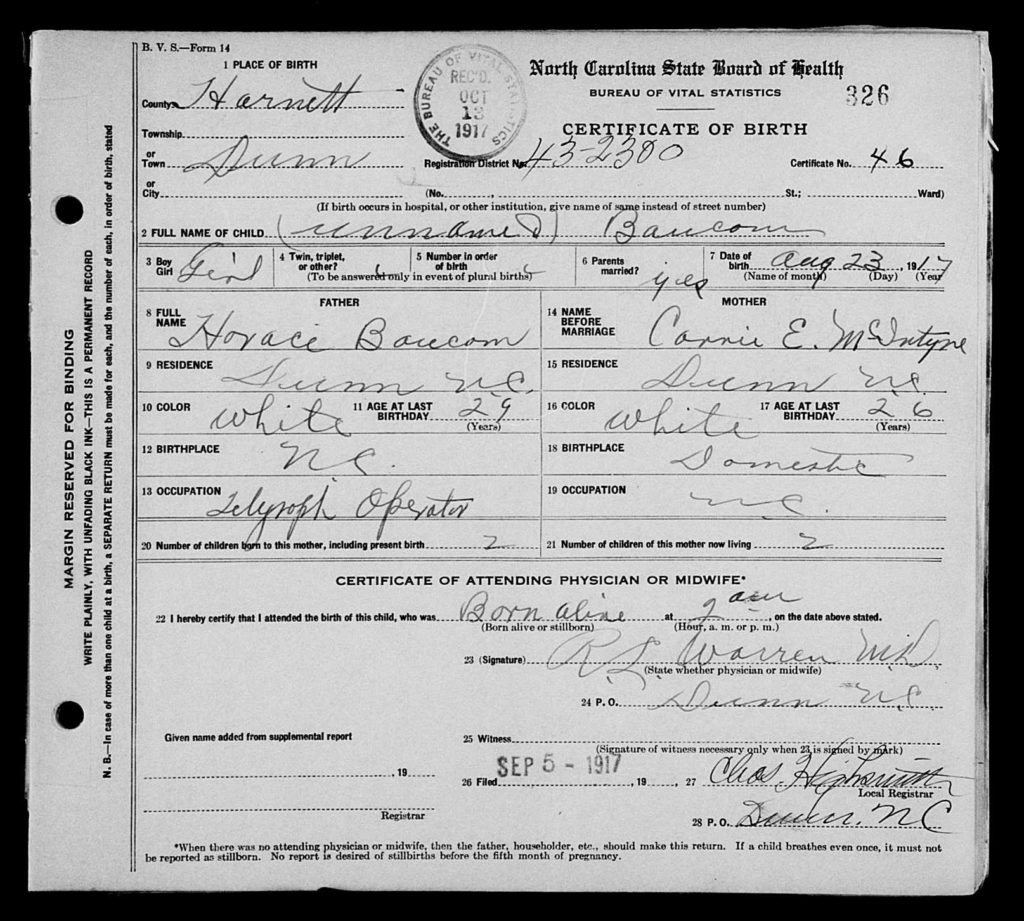 B. V. S.—Form 14
1 PLACE OF BIRTH
County Harnett
Township
or
Town Dunn
or
City
THE BUREAU OF VITAL STATISTICS
REC'D.
OCT
13
1917
North Carolina State Board of Health
BUREAU OF VITAL STATISTICS
326
CERTIFICATE OF BIRTH
Registration District No. 43-2380 Certificate No. 46
(No. , St.; Ward)
(If birth occurs in hospital, or other institution, give name of same instead of street number)
2 FULL NAME OF CHILD (unnamed) Baucom
3 Boy Girl Girl 4 Twin, triplet, or other? 5 Number in order of birth (To be answered only in event of plural births) 6 Parents married? yes 7 Date of birth Aug 23, 1917
(Name of month) (Day) (Year)
FATHER
8 FULL NAME Horace Baucom
9 RESIDENCE Dunn N.C.
10 COLOR White 11 AGE AT LAST BIRTHDAY 29 (Years)
12 BIRTHPLACE N.C.
13 OCCUPATION Telygraph Operator
MOTHER
14 NAME BEFORE MARRIAGE Carrie E. McIntyre
15 RESIDENCE Dunn N.C.
16 COLOR White 17 AGE AT LAST BIRTHDAY 26 (Years)
18 BIRTHPLACE Domestic
19 OCCUPATION N.C.
20 Number of children born to this mother, including present birth 2
21 Number of children of this mother now living 2
CERTIFICATE OF ATTENDING PHYSICIAN OR MIDWIFE*
22 I hereby certify that I attended the birth of this child, who was Born alive at am, on the date above stated.
(Born alive or stillborn) (Hour, a. m. or p. m.)
23 (Signature) R. L. Warren M.D.
(State whether physician or midwife)
24 P. O. Dunn N.C.
Given name added from supplemental report
, 19
Registrar
25 Witness
(Signature of witness necessary only when 23 is signed by mark)
26 Filed SEP 5 - 1917, 19 , 27 Chas. Highsmith
Local Registrar
28 P. O. Dunn, N C
*When there was no attending physician or midwife, then the father, householder, etc., should make this return. If a child breathes even once, it must not
be reported as stillborn. No report is desired of stillbirths before the fifth month of pregnancy.
MARGIN RESERVED FOR BINDING
WRITE PLAINLY, WITH UNFADING BLACK INK—THIS IS A PERMANENT RECORD
N. B.—In case of more than one child at a birth, a SEPARATE RETURN must be made for each, and the number of each, in order of birth, stated